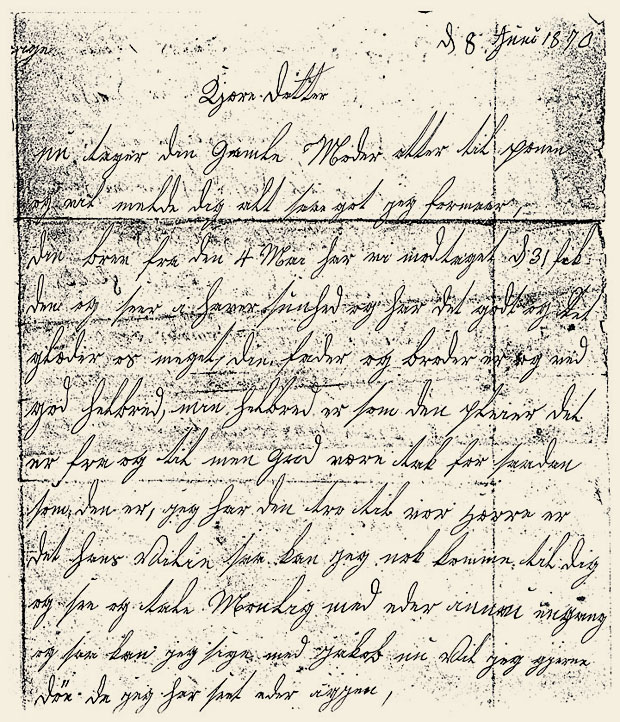 d 8 Juni 1870
Kjære Datter
nu tager din Gamle Moder atter til penen
og vil melde dig alt saa got jeg formaar,
din brev fra den 4 Mai har vi modtaget d 31
den og seer i haver sunhed og har det godt og det
glæder os meget, din fader og broder er og ved
god helbred, min helbred er som den pleier det
er fra og til men Gud være tak for saadan
som den er, jeg har den tro til vor Herre er
det hans Vilie saa kan jeg nok komme til dig
og see og tale Mondtlig med eder annu engang
og saa kan jeg sige med Jakob nu Vil jeg gjerne
döe da jeg har seet eder igjen,